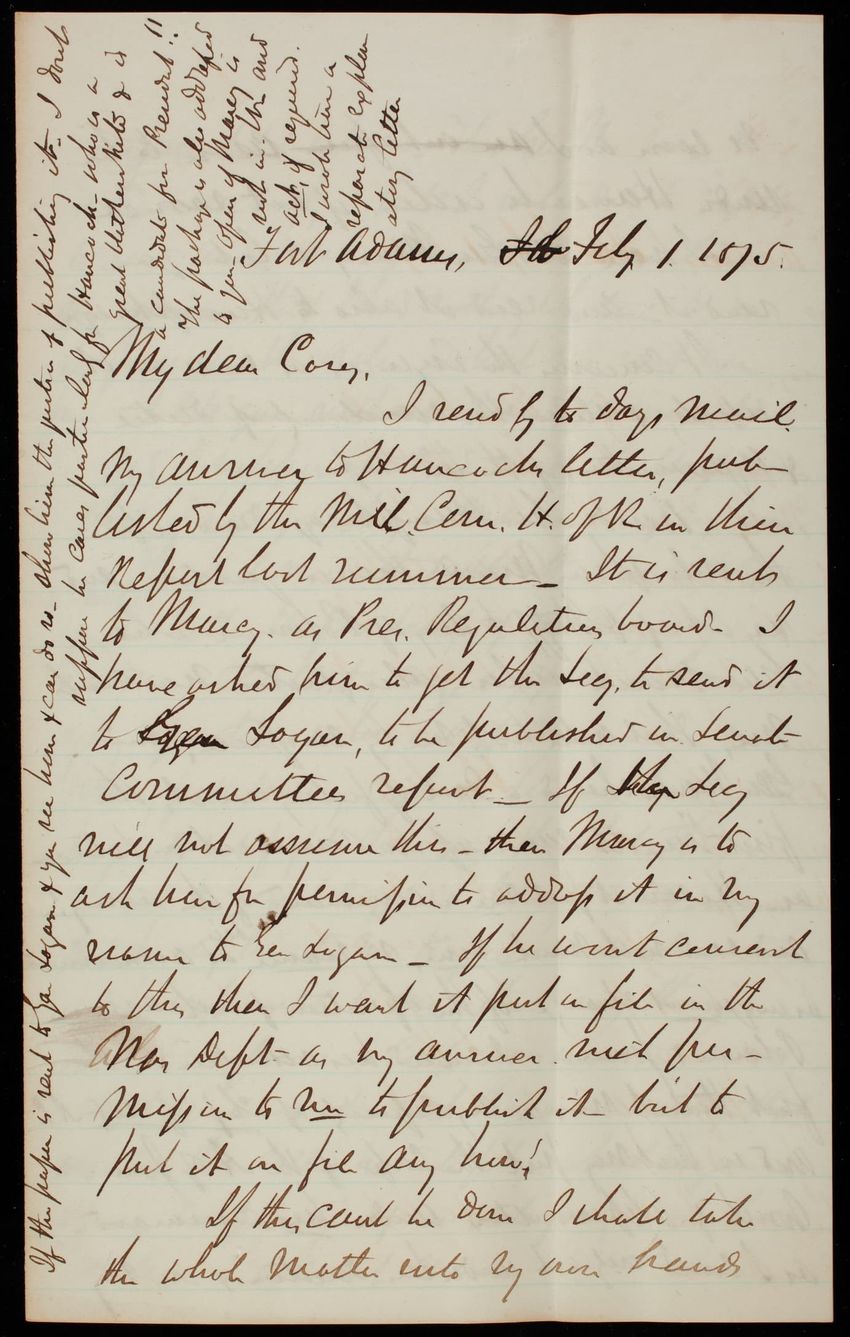 Fort Adams, Feby 1. 1875.
My dear Casey,
I send by to days mail
my answer to Hancocks letter, pub-
lished by the Mil. Com. H. of R. in their
Report last summer_ It is sent
to Marcy. as Pres. Regulating board. I
have asked him to get the Secy. to send it
to Logan, to be published in Senate
Committees report_ If Secy
will not assume this_ then Marcy is to
ask him for permission to address it in my
name to Gen Logan_ If he wont consent
to this then I want it put on file in the
War Dept as my answer. with per-
mission to me to publish it_ but to
put it on file any how!
If this cant be done I shall take
the whole matter into my own hands
If the paper is sent to Gen Logan & you see him & can do so_ show him the justice of publishing it_ I dont
suppose he cares particularly for Hancock_ who is a
great & is
a candidate for President!!
The package is also addressed
to you_ open if Marcy is
not in. and
act, if required.
I wrote him a
separate explan
atory letter